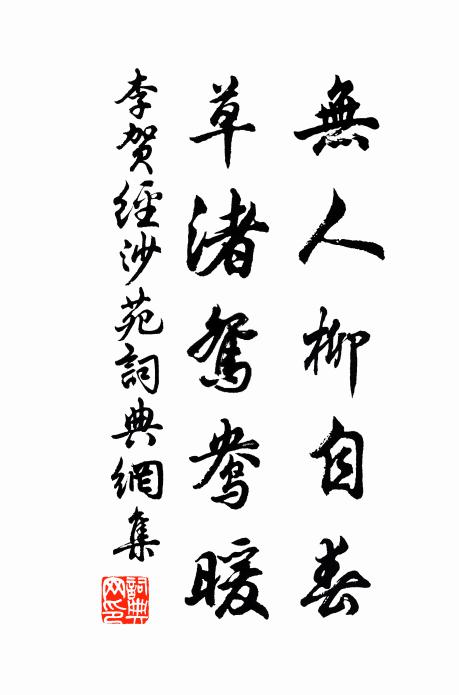 無人柳自春
草渚鴛鴦暖
李賀經沙苑詞典網集
詞典网印